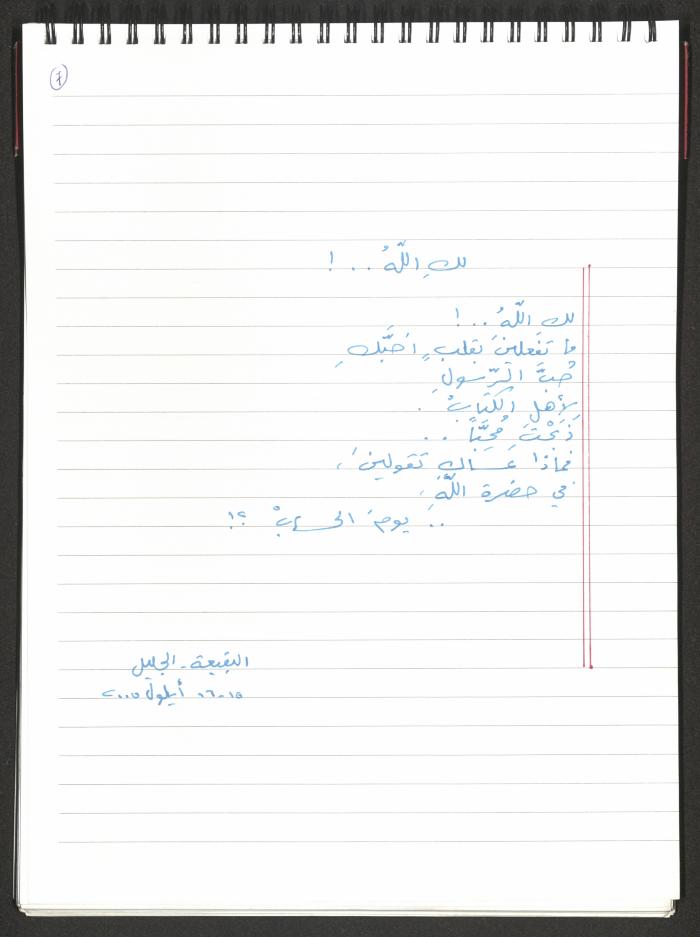 لكِ اللّهُ . . !
لكِ اللّهُ . . !
ما تفعلينَ بقلبٍ أحبَّكِ
حُبَّ الرّسولِ
لِأهلِ الكتابْ .
ذَبَحْتِ مُحِبًّا . .
فماذا عَساكِ تقولينَ ،
في حضرة اللّهِ ،
. . يومَ الحسابْ ؟!
البقيعة - الجليل
١٥ - ١٦ أيلول ٢٠٠٥